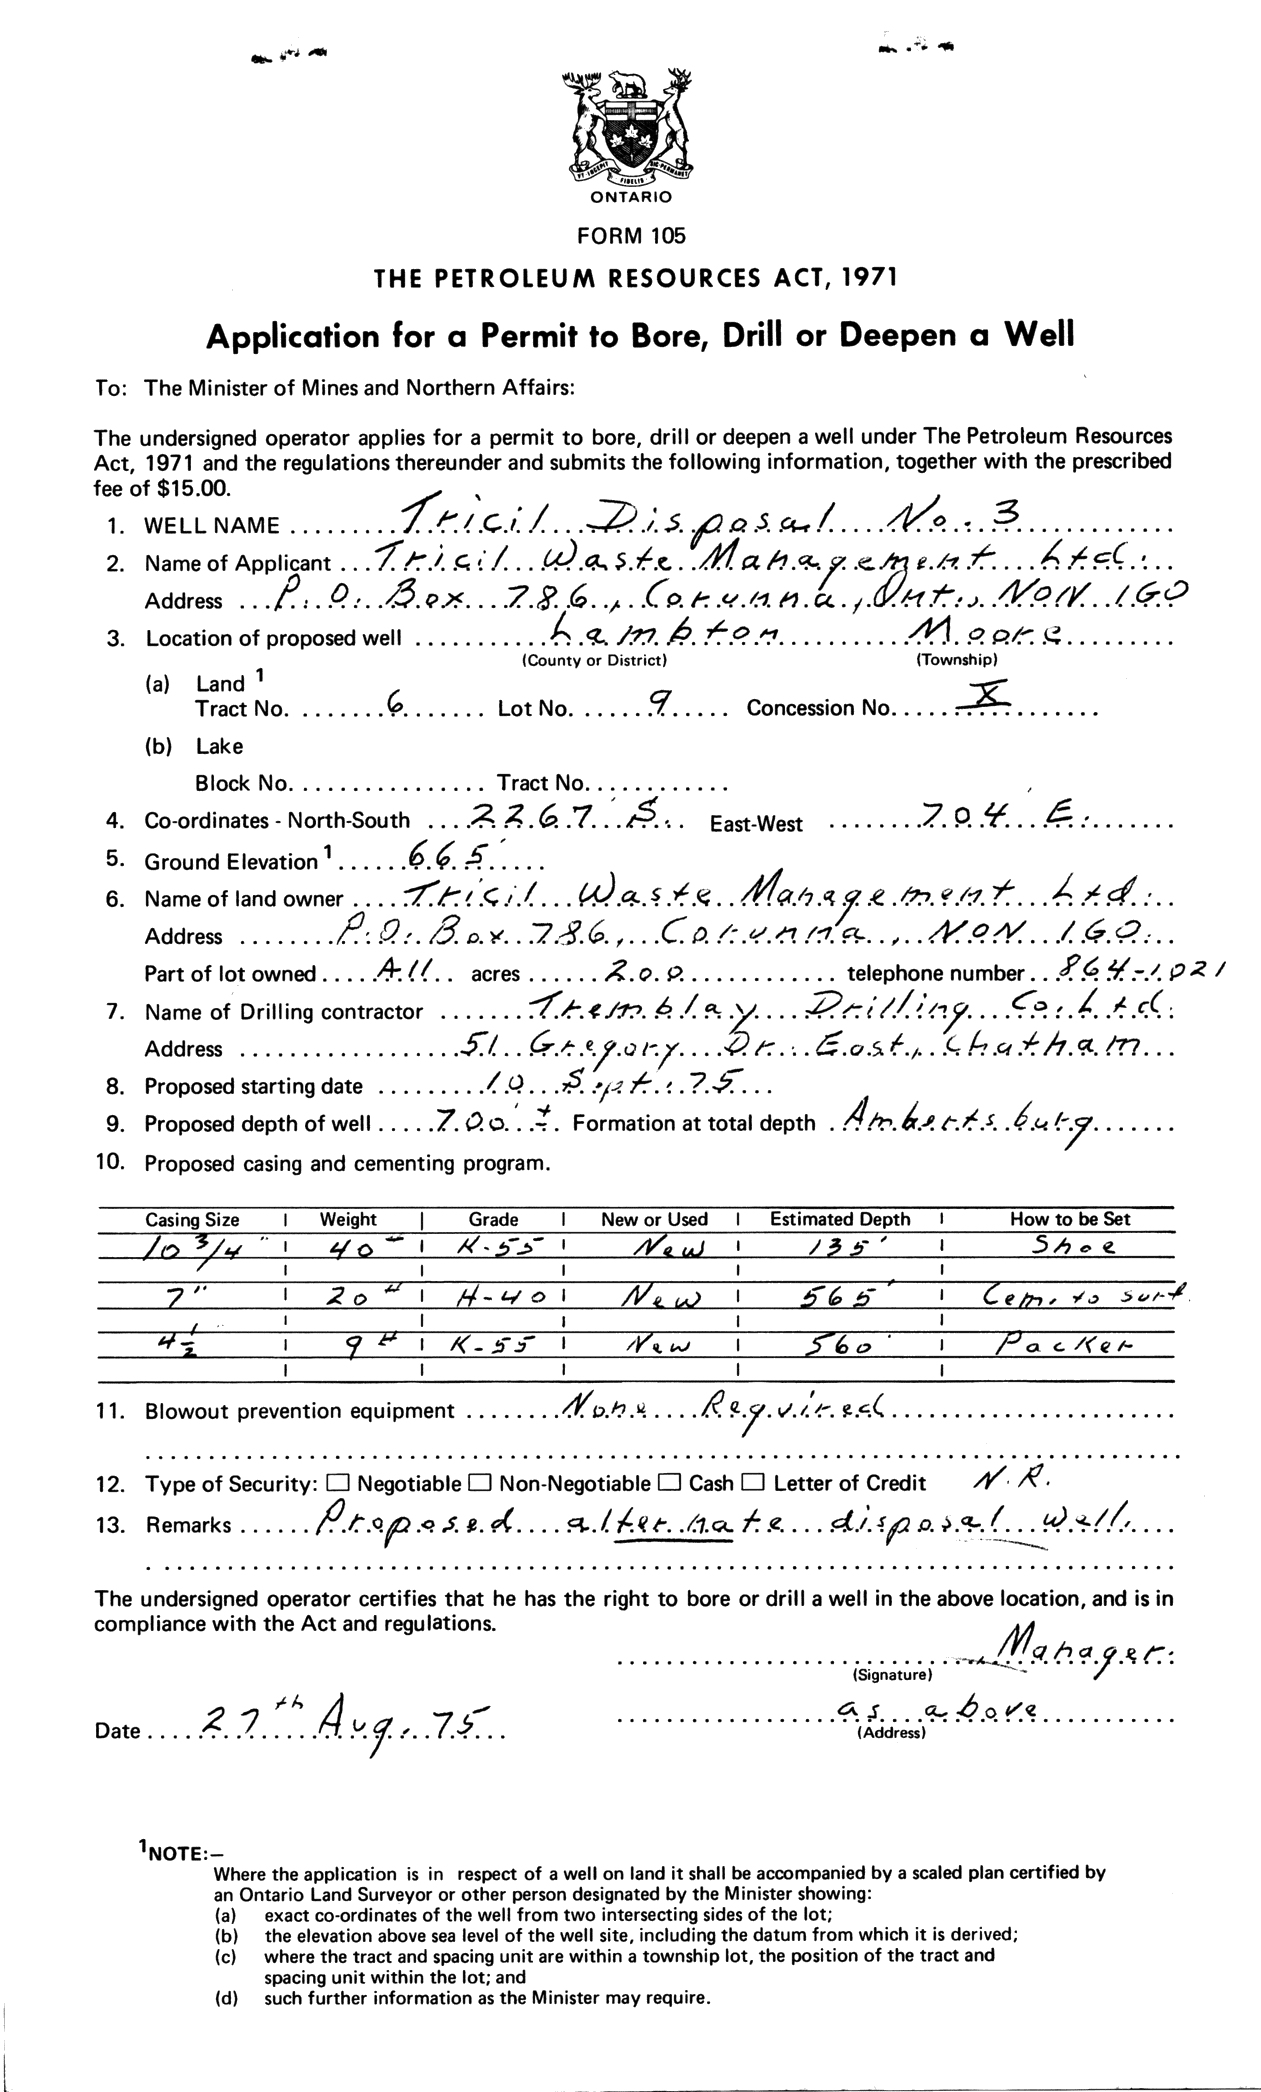 UT INCEPIT FIDELIS SIC PERMANET
ONTARIO
FORM 105
THE PETROLEUM RESOURCES ACT, 1971
Application for a Permit to Bore, Drill or Deepen a Well
To: The Minister of Mines and Northern Affairs:
The undersigned operator applies for a permit to bore, drill or deepen a well under The Petroleum Resources
Act, 1971 and the regulations thereunder and submits the following information, together with the prescribed
fee of $15.00.
1. WELL NAME Tricil Disposal No. 3
2. Name of Applicant Tricil Waste Management Ltd.
Address P.O. Box 786, Corunna, Ont., NON 1GO
3. Location of proposed well Lambton Moore
(County or District) (Township)
(a) Land 1
Tract No. 6 Lot No. 9 Concession No. X
(b) Lake
Block No. Tract No.
4. Co-ordinates - North-South 2267' S. East-West 704' E.
5. Ground Elevation 1 665'
6. Name of land owner Tricil Waste Management Ltd.
Address P.O. Box 786, Corunna, NON 1GO.
Part of lot owned All acres 200 telephone number 864-1021
7. Name of Drilling contractor Tremblay Drilling Co. Ltd.
Address 51 Gregory Dr. East, Chatham
8. Proposed starting date 10 Sept. 75
9. Proposed depth of well 700' ± Formation at total depth Amhertsburg
10. Proposed casing and cementing program.
Casing Size Weight Grade New or Used Estimated Depth How to be Set
10 3/4" 40 # K-55 New 135' Shoe
7" 20 # H-40 New 565' Cem. to surf.
4 1/2" 9 # K-55 New 560' Packer
11. Blowout prevention equipment None Required
12. Type of Security: ☐ Negotiable ☐ Non-Negotiable ☐ Cash ☐ Letter of Credit N.R.
13. Remarks Proposed alternate disposal well.
The undersigned operator certifies that he has the right to bore or drill a well in the above location, and is in
compliance with the Act and regulations.
Manager.
(Signature)
Date 27th Aug. 75 as above
(Address)
1NOTE:–
Where the application is in respect of a well on land it shall be accompanied by a scaled plan certified by
an Ontario Land Surveyor or other person designated by the Minister showing:
(a) exact co-ordinates of the well from two intersecting sides of the lot;
(b) the elevation above sea level of the well site, including the datum from which it is derived;
(c) where the tract and spacing unit are within a township lot, the position of the tract and
spacing unit within the lot; and
(d) such further information as the Minister may require.